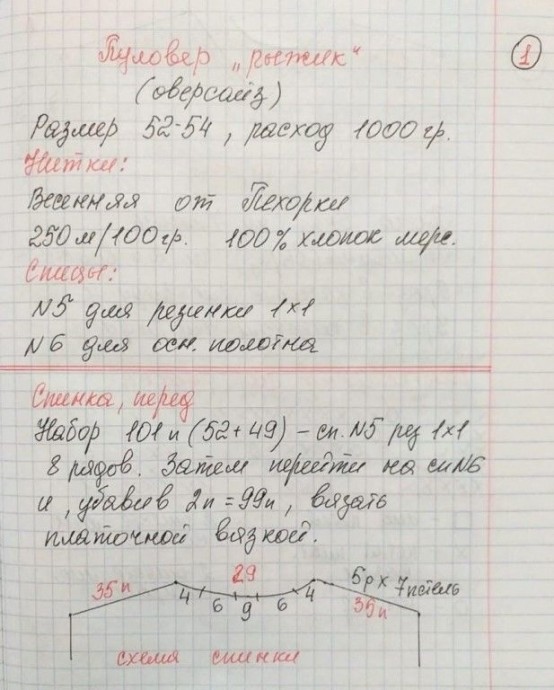 1
Пуловер „рыжик“
(оверсайз)
Размер 52-54, расход 1000 гр.
Нитки:
Весенняя от Пехорки
250 м/100 гр. 100% хлопок мерс.
Спицы:
N5 для резинки 1х1
N6 для осн. полотна
Спинка, перед
Набор 101 п (52+49) – сп. N5 рез 1х1
8 рядов. Затем перейти на сп N6
и, убавив 2 п = 99 п, вязать
платочной вязкой.
29
35 п 4 6 9 6 4 5р х 7 петель
35 п
схема спинки